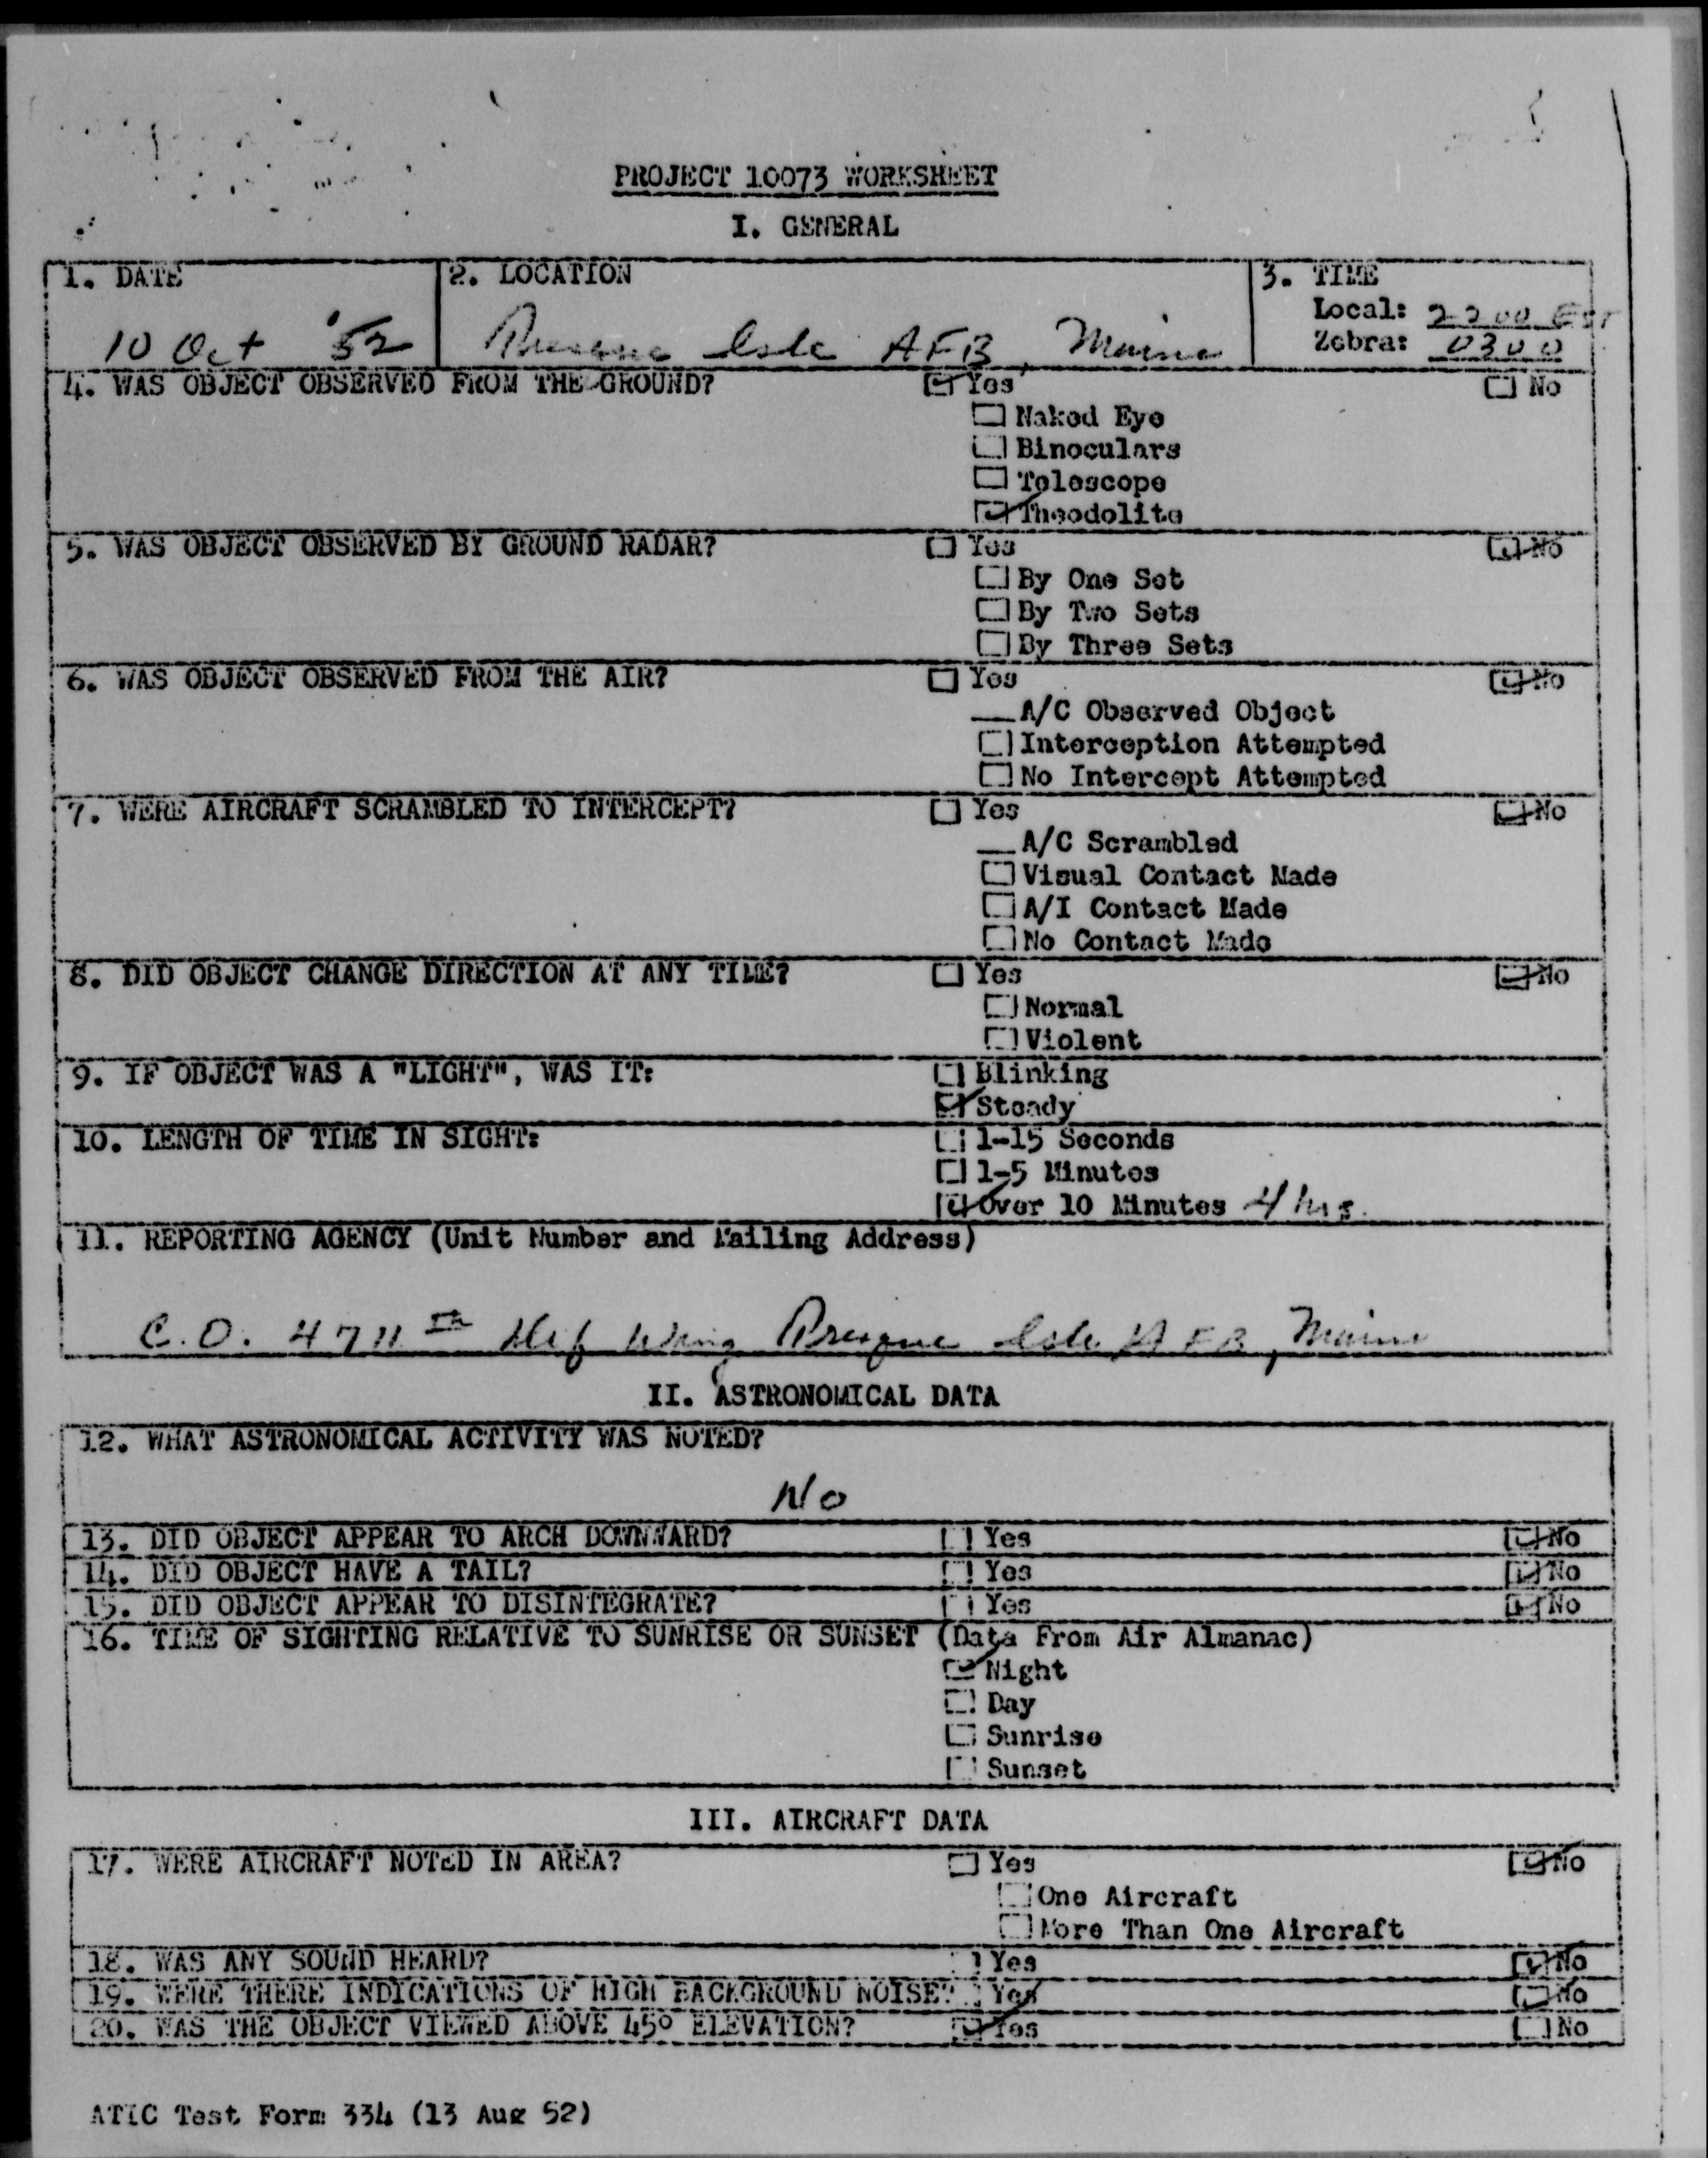 PROJECT 10073 WORKSHEET
I. GENERAL
1. DATE
10 Oct '52
2. LOCATION
Presque Isle AFB, Maine
3. TIME
Local: 2200 EST
Zebra: 0300
4. WAS OBJECT OBSERVED FROM THE GROUND? ☑ Yes ☐ No
☐ Naked Eye
☐ Binoculars
☐ Telescope
☑ Theodolite
5. WAS OBJECT OBSERVED BY GROUND RADAR? ☐ Yes ☑ No
☐ By One Set
☐ By Two Sets
☐ By Three Sets
6. WAS OBJECT OBSERVED FROM THE AIR? ☐ Yes ☑ No
__ A/C Observed Object
☐ Interception Attempted
☐ No Intercept Attempted
7. WERE AIRCRAFT SCRAMBLED TO INTERCEPT? ☐ Yes ☑ No
__ A/C Scrambled
☐ Visual Contact Made
☐ A/I Contact Made
☐ No Contact Made
8. DID OBJECT CHANGE DIRECTION AT ANY TIME? ☐ Yes ☑ No
☐ Normal
☐ Violent
9. IF OBJECT WAS A "LIGHT", WAS IT: ☐ Blinking
☑ Steady
10. LENGTH OF TIME IN SIGHT: ☐ 1-15 Seconds
☐ 1-5 Minutes
☑ Over 10 Minutes 4 hrs.
11. REPORTING AGENCY (Unit Number and Mailing Address)
C.O. 4711th Def Wing Presque Isle AFB, Maine
II. ASTRONOMICAL DATA
12. WHAT ASTRONOMICAL ACTIVITY WAS NOTED?
No
13. DID OBJECT APPEAR TO ARCH DOWNWARD? ☐ Yes ☑ No
14. DID OBJECT HAVE A TAIL? ☐ Yes ☑ No
15. DID OBJECT APPEAR TO DISINTEGRATE? ☐ Yes ☑ No
16. TIME OF SIGHTING RELATIVE TO SUNRISE OR SUNSET (Data From Air Almanac)
☑ Night
☐ Day
☐ Sunrise
☐ Sunset
III. AIRCRAFT DATA
17. WERE AIRCRAFT NOTED IN AREA? ☐ Yes ☑ No
☐ One Aircraft
☐ More Than One Aircraft
18. WAS ANY SOUND HEARD? ☐ Yes ☑ No
19. WERE THERE INDICATIONS OF HIGH BACKGROUND NOISE? ☐ Yes ☑ No
20. WAS THE OBJECT VIEWED ABOVE 45° ELEVATION? ☑ Yes ☐ No
ATIC Test Form 334 (13 Aug 52)